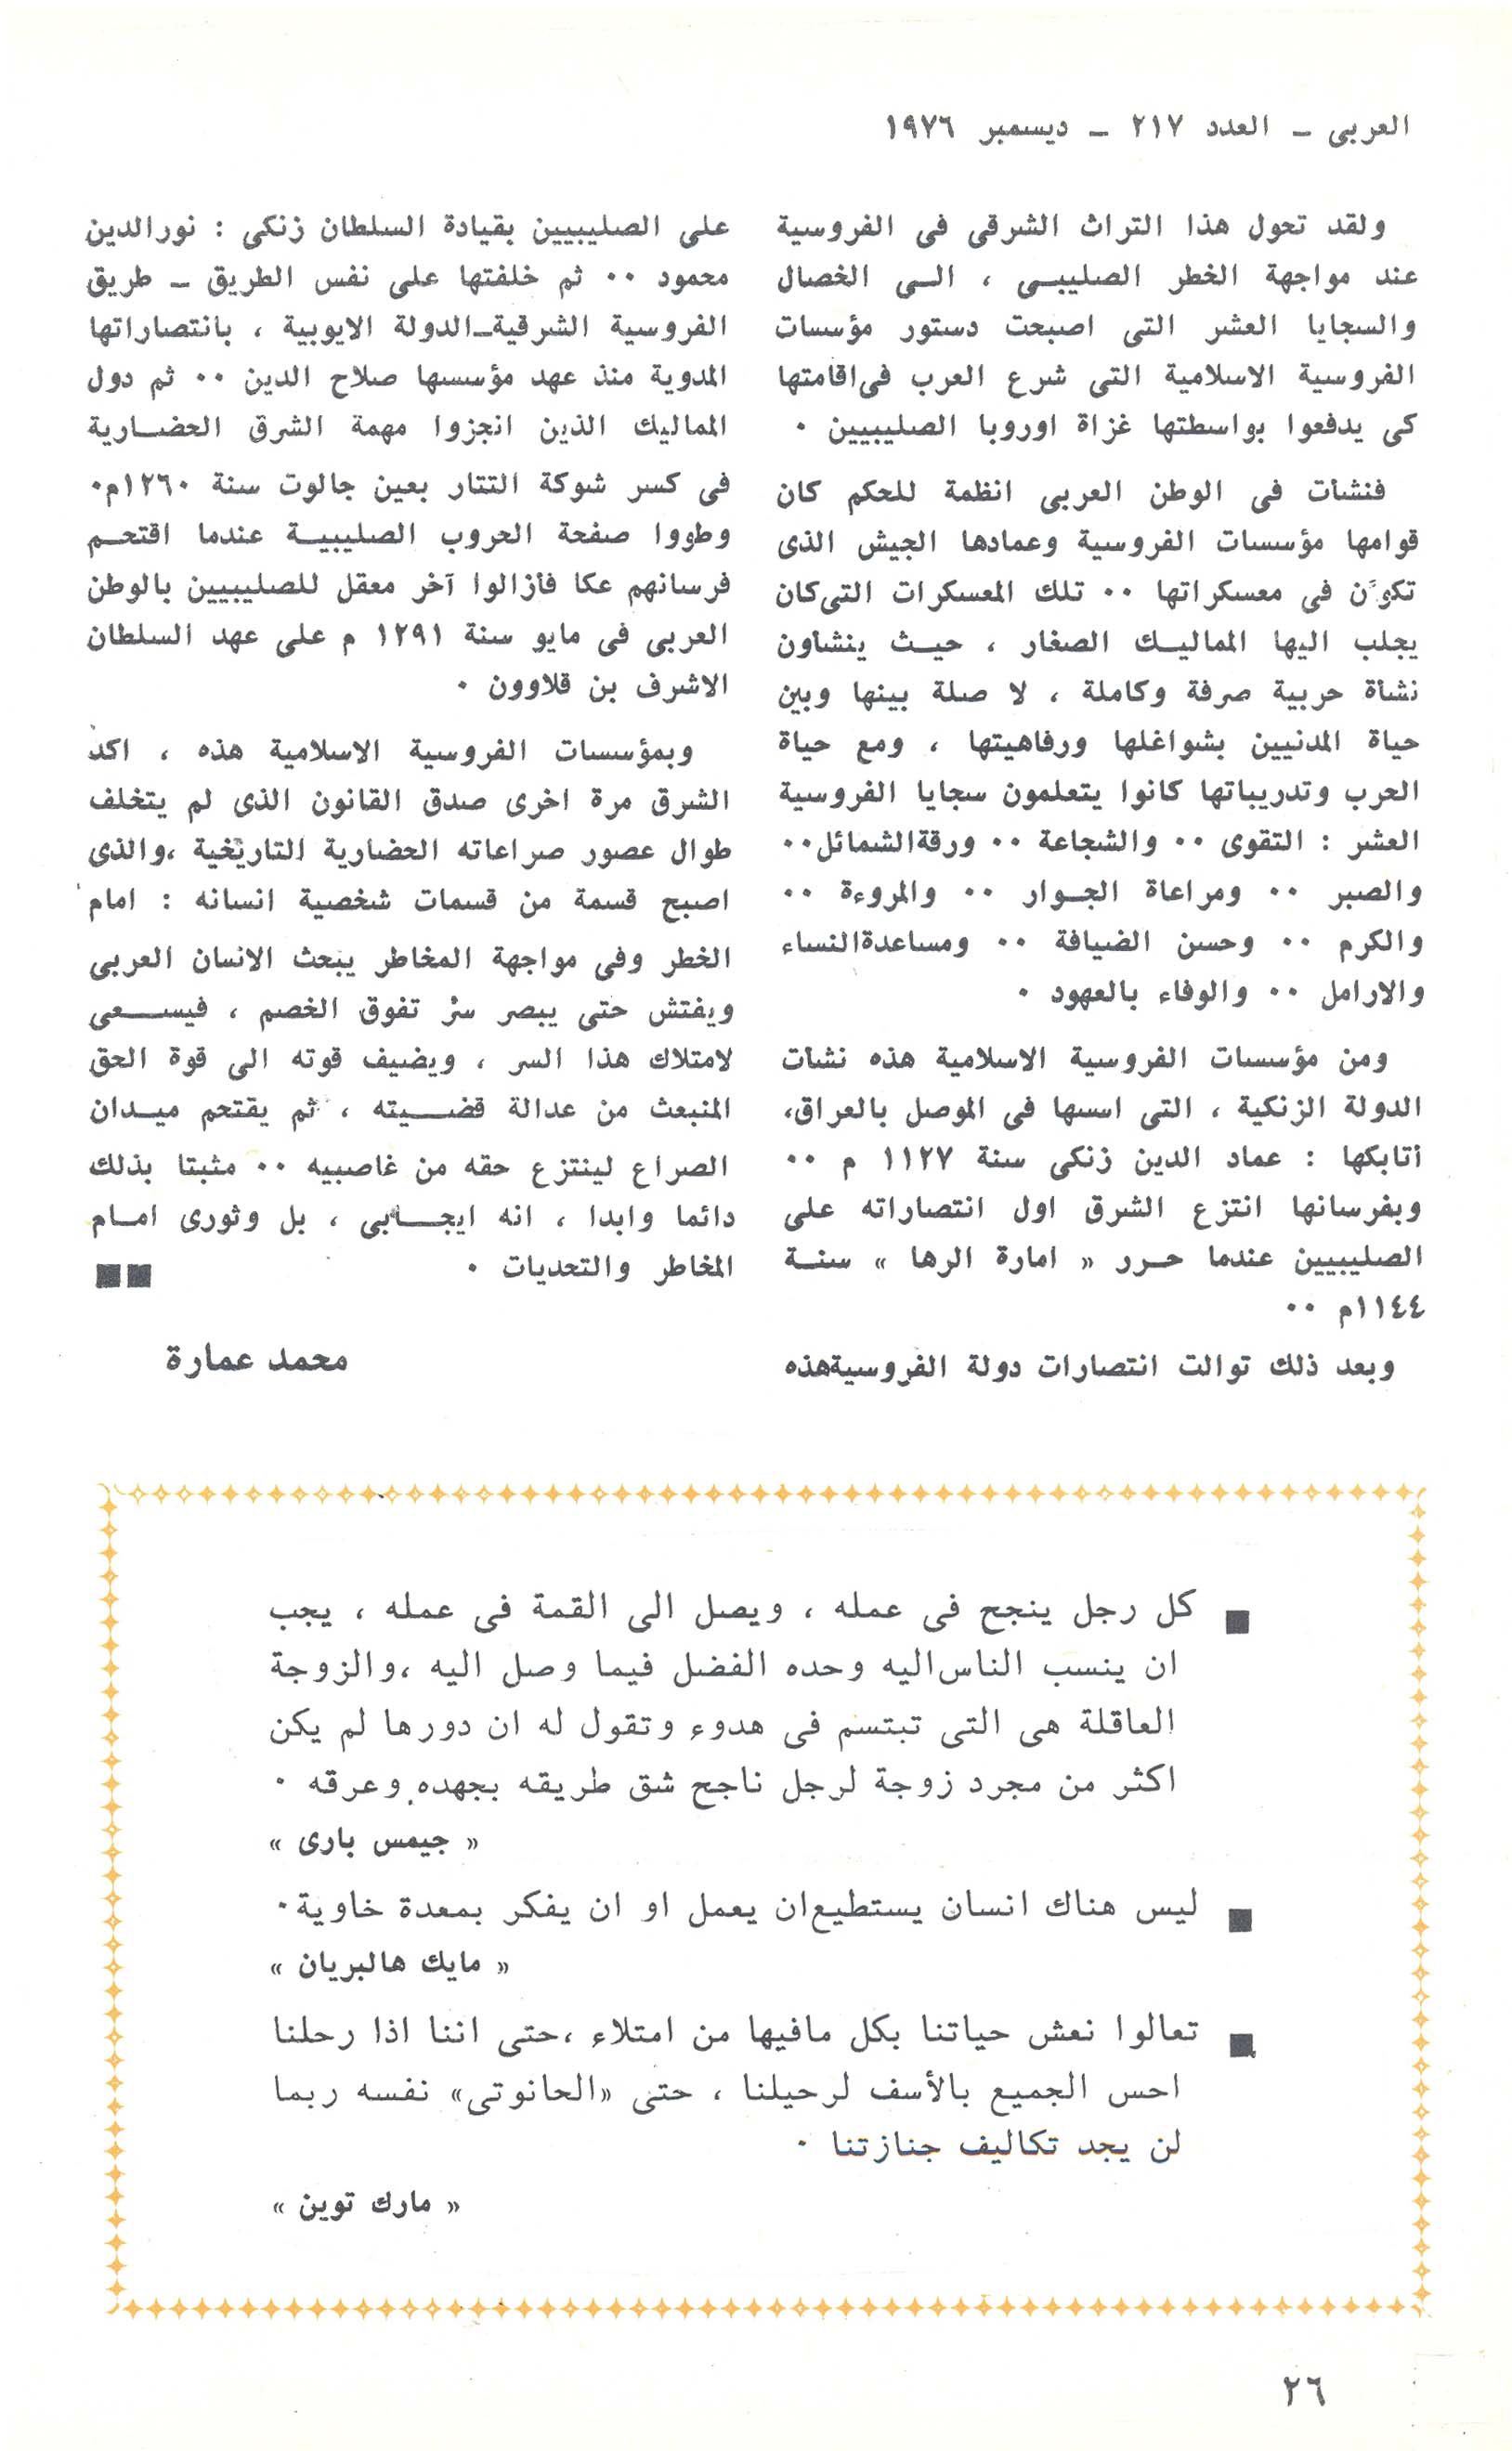 العربى ــ العدد ٢١٧ ــ ديسمبر ١٩٧٦
ولقد تحول هذا التراث الشرقى فى الفروسية
عند مواجهة الخطر الصليبى ، الى الخصال
والسجايا العشر التى اصبحت دستور مؤسسات
الفروسية الاسلامية التى شرع العرب فى اقامتها
كى يدفعوا بواسطتها غزاة اوروبا الصليبيين ٠
فنشأت فى الوطن العربى انظمة للحكم كان
قوامها مؤسسات الفروسية وعمادها الجيش الذى
تكوّن فى معسكراتها ٠٠ تلك المعسكرات التى كان
يجلب اليها المماليك الصغار ، حيث ينشأون
نشأة حربية صرفة وكاملة ، لا صلة بينها وبين
حياة المدنيين بشواغلها ورفاهيتها ، ومع حياة
الحرب وتدريباتها كانوا يتعلمون سجايا الفروسية
العشر : التقوى ٠٠ والشجاعة ٠٠ ورقة الشمائل ٠٠
والصبر ٠٠ ومراعاة الجوار ٠٠ والمروءة ٠٠
والكرم ٠٠ وحسن الضيافة ٠٠ ومساعدة النساء
والارامل ٠٠ والوفاء بالعهود ٠
ومن مؤسسات الفروسية الاسلامية هذه نشأت
الدولة الزنكية ، التى اسسها فى الموصل بالعراق،
أتابكها : عماد الدين زنكى سنة ١١٢٧ م ٠٠
وبفرسانها انتزع الشرق اول انتصاراته على
الصليبيين عندما حرر « امارة الرها » سنة
١١٤٤م ٠٠
وبعد ذلك توالت انتصارات دولة الفروسية هذه
على الصليبيين بقيادة السلطان زنكى : نور الدين
محمود ٠٠ ثم خلفتها على نفس الطريق ــ طريق
الفروسية الشرقية ــ الدولة الايوبية ، بانتصاراتها
المدوية منذ عهد مؤسسها صلاح الدين ٠٠ ثم دول
المماليك الذين انجزوا مهمة الشرق الحضارية
فى كسر شوكة التتار بعين جالوت سنة ١٢٦٠م٠
وطووا صفحة الحروب الصليبية عندما اقتحم
فرسانهم عكا فأزالوا آخر معقل للصليبيين بالوطن
العربى فى مايو سنة ١٢٩١ م على عهد السلطان
الاشرف بن قلاوون ٠
وبمؤسسات الفروسية الاسلامية هذه ، اكد
الشرق مرة اخرى صدق القانون الذى لم يتخلف
طوال عصور صراعاته الحضارية التاريخية ،والذى
اصبح قسمة من قسمات شخصية انسانه : امام
الخطر وفى مواجهة المخاطر يبحث الانسان العربى
ويفتش حتى يبصر سرّ تفوق الخصم ، فيسعى
لامتلاك هذا السر ، ويضيف قوته الى قوة الحق
المنبعث من عدالة قضيته ، ثم يقتحم ميدان
الصراع لينتزع حقه من غاصبيه ٠٠ مثبتا بذلك
دائما وابدا ، انه ايجابى ، بل وثورى امام
المخاطر والتحديات ٠ ■■
محمد عمارة
■ كل رجل ينجح فى عمله ، ويصل الى القمة فى عمله ، يجب
ان ينسب الناس اليه وحده الفضل فيما وصل اليه ،والزوجة
العاقلة هى التى تبتسم فى هدوء وتقول له ان دورها لم يكن
اكثر من مجرد زوجة لرجل ناجح شق طريقه بجهده وعرقه ٠
« جيمس بارى »
■ ليس هناك انسان يستطيع ان يعمل او ان يفكر بمعدة خاوية٠
« مايك هالبريان »
■ تعالوا نعش حياتنا بكل مافيها من امتلاء ،حتى اننا اذا رحلنا
احس الجميع بالأسف لرحيلنا ، حتى «الحانوتى» نفسه ربما
لن يجد تكاليف جنازتنا ٠
« مارك توين »
٢٦